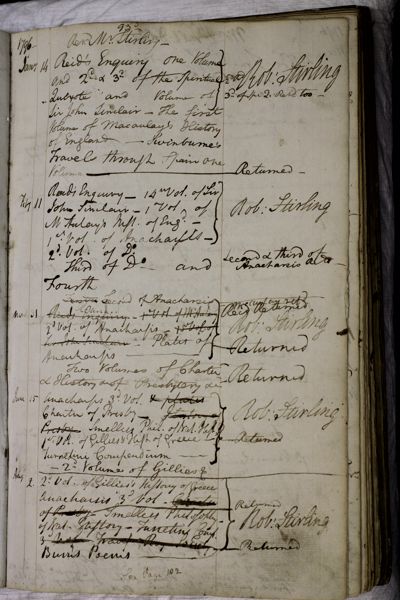 93
Revd Mr. Stirling
1796
Janry 14 Reid's Enquiry one Volume
and 2d & 3d of the Spiritual
Quixote and Volume of
Sir John Sinclair - The first
Volume of Macaulay's History
of England - Swinburne's
Travels through Spain one
Volume
Rob: Stirling
Returned
Feby 11 Reids Enquiry - 14th Vol. of Sir
John Sinclair - 1st Vol. of
McAulay's Hist. of Engd.
1st Vol. of Anacharsis
2d. Vol. of Do
Third of Do and
Fourth
Rob: Stirling
Second & third of
Anacharsis also
Second of Anacharsis
Reids Enquiry
3d Vol. of Anacharsis
Plates of
Anacharsis
Returned
Rob: Stirling
Returned
Two Volumes of Charter
& History of Presbytery
Returned
15 Anacharsis 3d Vol. & plates
Charter of Presby
Smellies Phil. of Nat. Hist.
1st Vol. of Gillies's Hist. of Greece
Compendium
2d Volume of Gillies's
Rob: Stirling
Returned
2 2d Vol. of Gillies's History of Greece
Anacharsis 3d Vol.
Smellies Philosophy
of Nat. History
Burns Poems
Returned
Rob: Stirling
Returned
See Page 102